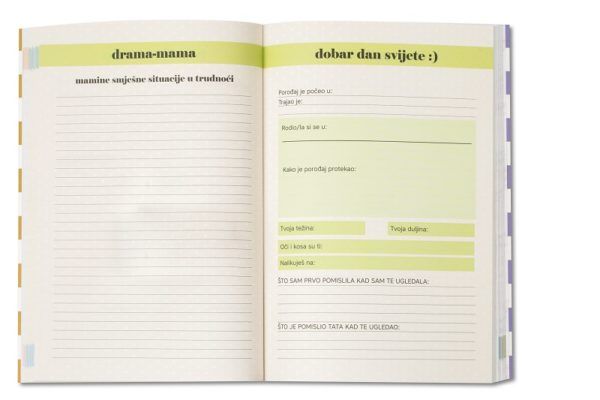 drama-mama
mamine smješne situacije u trudnoći
dobar dan svijete :)
Porođaj je počeo u:
Trajao je:
Rodio/la si se u:
Kako je porođaj protekao:
Tvoja težina:
Tvoja duljina:
Oči i kosa su ti:
Nalikuješ na:
ŠTO SAM PRVO POMISLILA KAD SAM TE UGLEDALA:
ŠTO JE POMISLIO TATA KAD TE UGLEDAO: